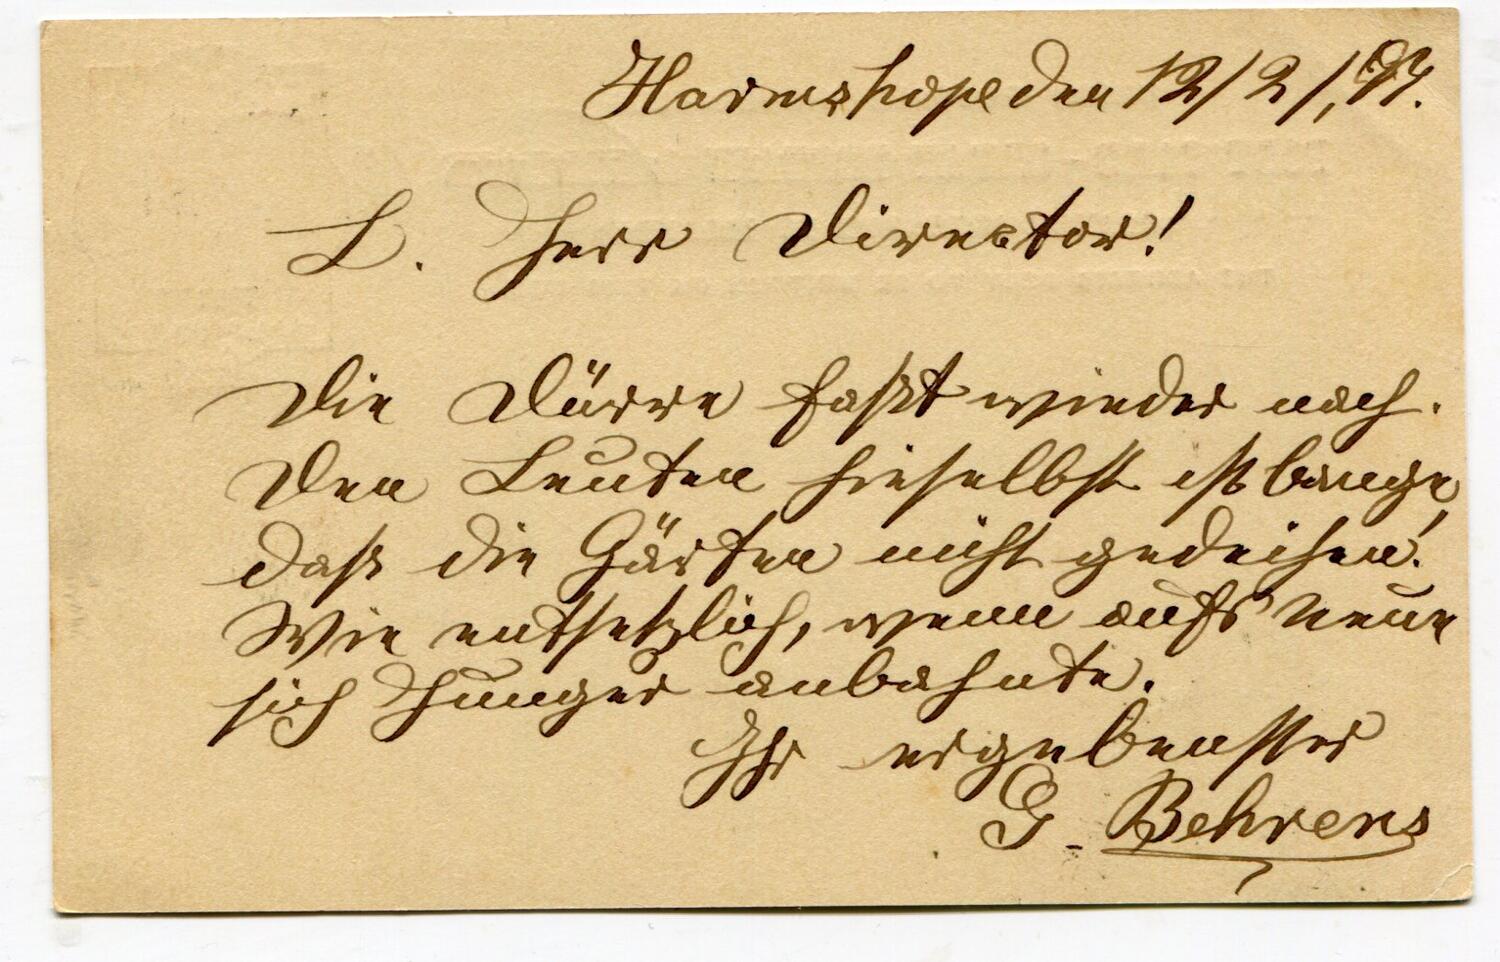 Harmshope den 12/2/,97.
L. Herr Director!
Die Dürre faßt wieder nach.
Den Leuten hieselbst ist bange,
daß die Gärten nicht gedeihen!
Wie entsetzlich, wenn aufs neue
sich Hunger anbahnte.
Ihr ergebenster
G. Behrens